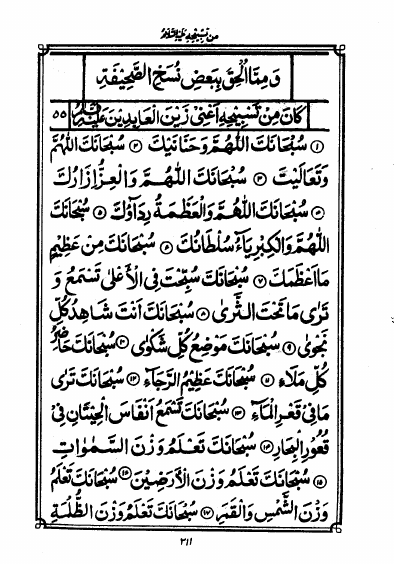 من تسبيحه عليه السلام
وَمِمَّا أُلْحِقَ بِبَعْضِ نُسَخِ الصَّحِيفَةِ
كَانَ مِنْ تَسْبِيحِهِ أَعْنِي زَيْنَ الْعَابِدِينَ عَلَيْهِ السَّلَامُ ٥٥
١ سُبْحَانَكَ اللَّهُمَّ وَحَنَانَيْكَ ٢ سُبْحَانَكَ اللَّهُمَّ
وَتَعَالَيْتَ ٣ سُبْحَانَكَ اللَّهُمَّ وَالْعِزُّ إِزَارُكَ
سُبْحَانَكَ اللَّهُمَّ وَالْعَظَمَةُ رِدَاؤُكَ ٥ سُبْحَانَكَ
اللَّهُمَّ وَالْكِبْرِيَاءُ سُلْطَانُكَ ٦ سُبْحَانَكَ مِنْ عَظِيمٍ
مَا أَعْظَمَكَ ٧ سُبْحَانَكَ سُبِّحْتَ فِي الْأَعْلَى تَسْمَعُ وَ
تَرَى مَا تَحْتَ الثَّرَى ٨ سُبْحَانَكَ أَنْتَ شَاهِدُ كُلِّ
نَجْوَى ٩ سُبْحَانَكَ مَوْضِعُ كُلِّ شَكْوَى ١٠ سُبْحَانَكَ حَاضِرُ
كُلِّ مَلَاءٍ ١١ سُبْحَانَكَ عَظِيمُ الرَّجَاءِ ١٢ سُبْحَانَكَ تَرَى
مَا فِي قَعْرِ الْمَاءِ ١٣ سُبْحَانَكَ تَسْمَعُ أَنْفَاسَ الْحِيتَانِ فِي
قُعُورِ الْبِحَارِ ١٤ سُبْحَانَكَ تَعْلَمُ وَزْنَ السَّمٰوَاتِ
١٥ سُبْحَانَكَ تَعْلَمُ وَزْنَ الْأَرَضِينَ ١٦ سُبْحَانَكَ تَعْلَمُ
وَزْنَ الشَّمْسِ وَالْقَمَرِ ١٧ سُبْحَانَكَ تَعْلَمُ وَزْنَ الظُّلْمَةِ
٣١١